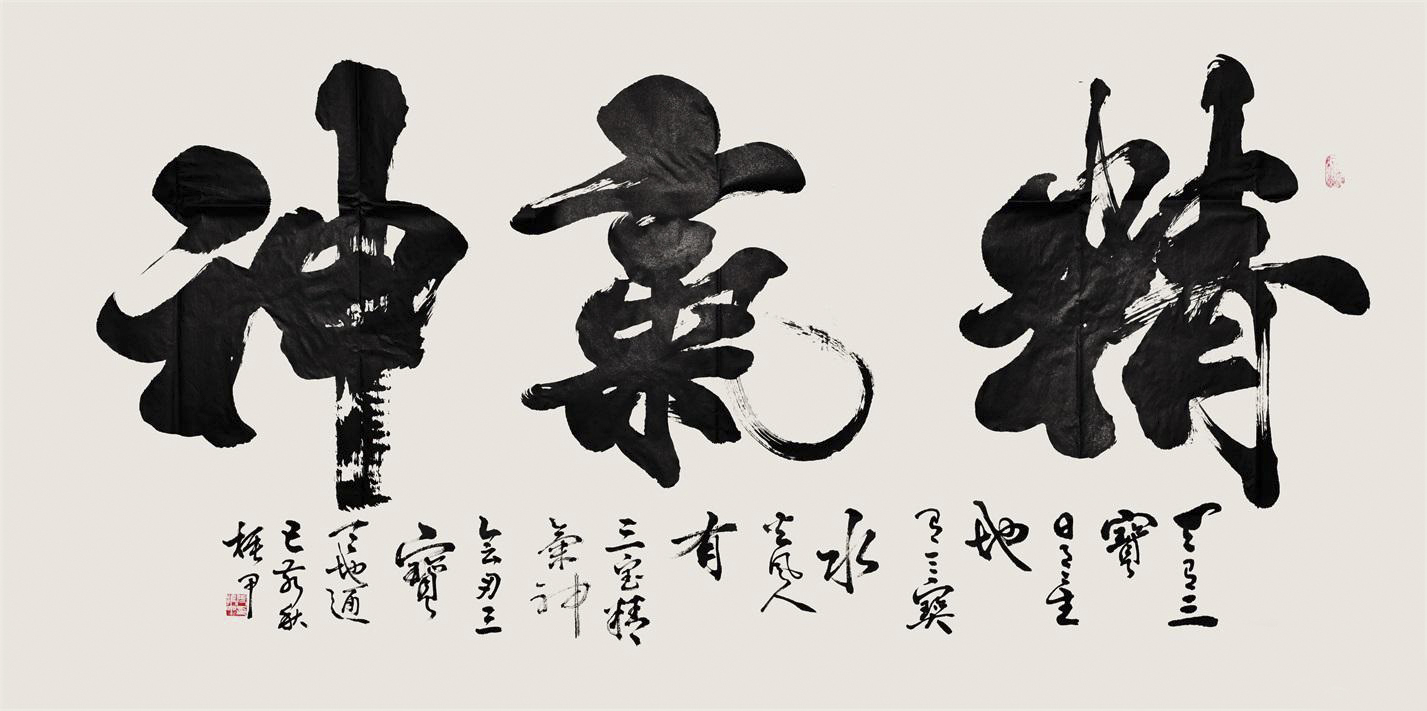 精氣神
天有三
寶
日月星
地
有三寶
水
火風人
有
三宝精
氣神
会用三
寶
天地通
己亥秋